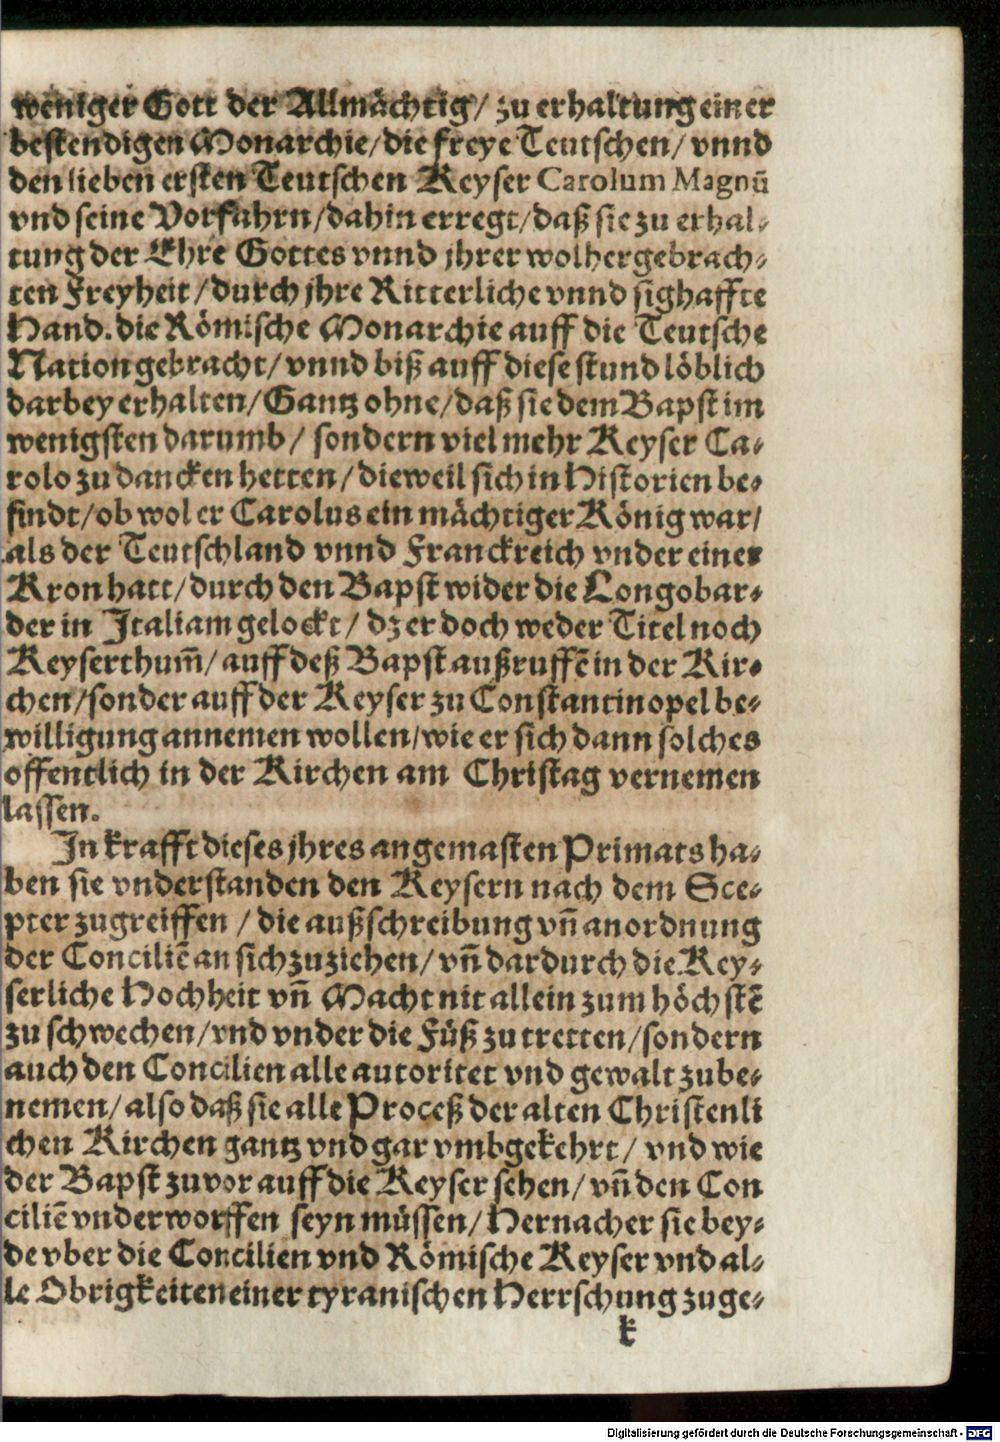 weniger Gott der Allmächtig/ zu erhaltung einer
bestendigen Monarchie/die freye Teutschen/ vnnd
den lieben ersten Teutschen Keyser Carolum Magnū
vnd seine Vorfahrn/dahin erregt/daß sie zu erhal-
tung der Ehre Gottes vnnd jhrer wolhergebrach-
ten Freyheit/durch jhre Ritterliche vnnd sighaffte
Hand. die Römische Monarchie auff die Teutsche
Nation gebracht/ vnnd biß auff diese stund löblich
darbey erhalten/Gantz ohne/daß sie dem Bapst im
wenigsten darumb/ sondern viel mehr Keyser Ca-
rolo zu dancken hetten/dieweil sich in Historien be-
findt/ob wol er Carolus ein mächtiger König war/
als der Teutschland vnnd Franckreich vnder einer
Kron hatt/durch den Bapst wider die Longobar-
der in Italiam gelockt/ dz er doch weder Titel noch
Keyserthum̄/auff deß Bapst außruffē in der Kir-
chen/sonder auff der Keyser zu Constantinopel be-
willigung annemen wollen/wie er sich dann solches
offentlich in der Kirchen am Christag vernemen
lassen.
In krafft dieses jhres angemasten Primats ha-
ben sie vnderstanden den Keysern nach dem Sce-
pter zugreiffen /die außschreibung vn̄ anordnung
der Conciliē an sich zuziehen/vn̄ dardurch die Key-
serliche Hochheit vn̄ Macht nit allein zum höchstē
zu schwechen/vnd vnder die Füß zu tretten/sondern
auch den Concilien alle autoritet vnd gewalt zube-
nemen/also daß sie alle Proceß der alten Christenli
chen Kirchen gantz vnd gar vmbgekehrt/ vnd wie
der Bapst zuvor auff die Keyser sehen/vn̄ den Con
ciliē vnderworffen seyn müssen/Hernacher sie bey-
de vber die Concilien vnd Römische Keyser vnd al-
le Obrigkeiten einer tyranischen Herrschung zuge-
k
Digitalisierung gefördert durch die Deutsche Forschungsgemeinschaft - DFG